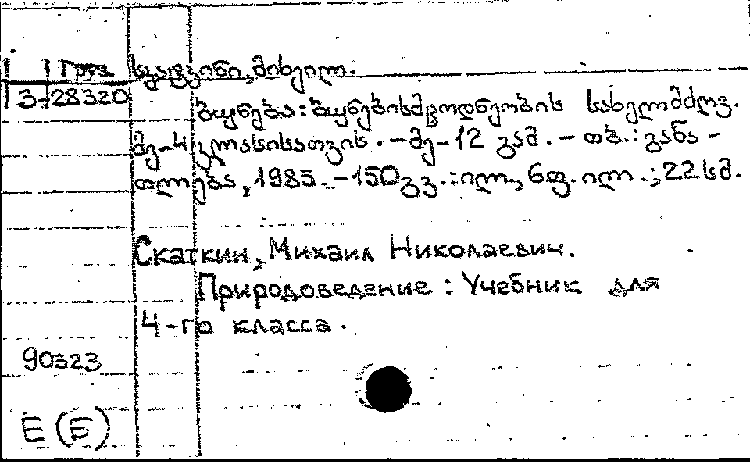 Груз სკატკინი, მიხეილ.
3-28320
ბუნება: ბუნებისმცოდნეობის სახელმძღვ.
მე-4 კლასისათვის. - მე-12 გამ. - თბ.: განა-
თლება, 1985. - 150 გვ.: ილ., 6 ფ. ილ.; 22 სმ.
Скаткин, Михаил Николаевич.
Природоведение: Учебник для
4-го класса.
90323
E (E)